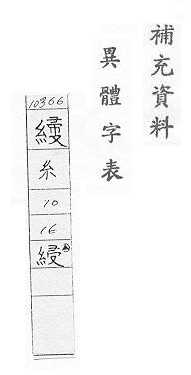 補充資料
異體字表
10366
糸
10
16